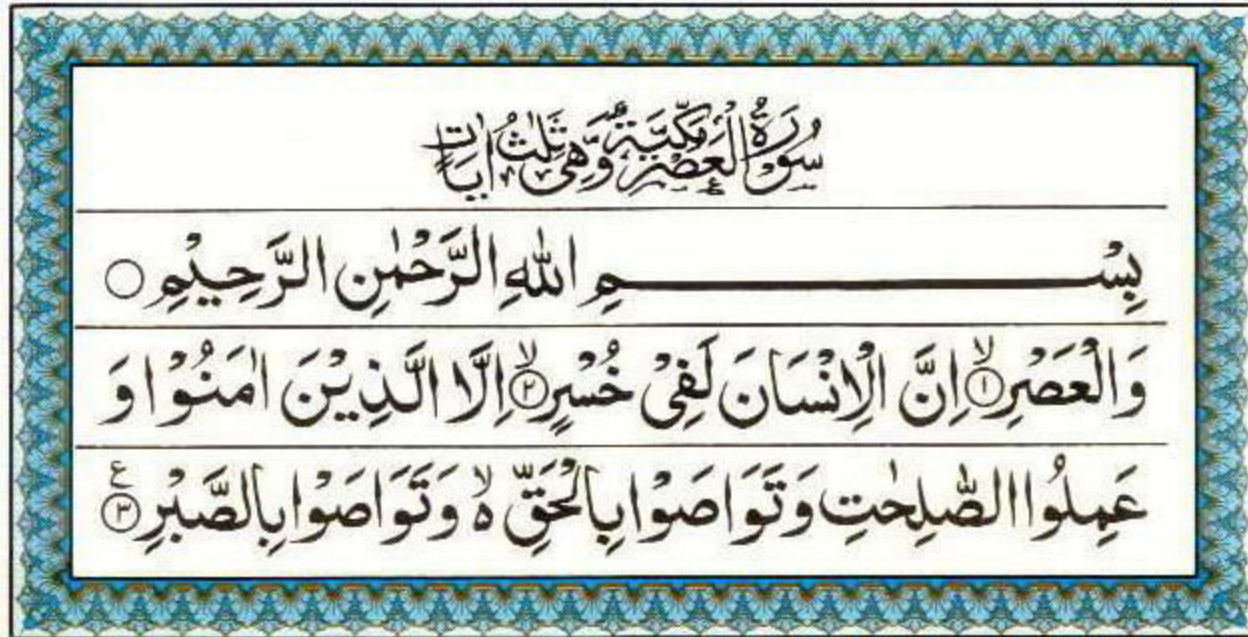 سُوْرَةُ الْعَصْرِ مَكِّيَّةٌ وَّهِیَ ثَلٰثُ اٰیَاتٍ
بِسْمِ اللّٰهِ الرَّحْمٰنِ الرَّحِیْمِ ○
وَالْعَصْرِۙ۝۱ اِنَّ الْاِنْسَانَ لَفِیْ خُسْرٍۙ۝۲ اِلَّا الَّذِیْنَ اٰمَنُوْا وَ
عَمِلُوا الصّٰلِحٰتِ وَتَوَاصَوْا بِالْحَقِّ ۙ۬ وَتَوَاصَوْا بِالصَّبْرِ۝۳ ع